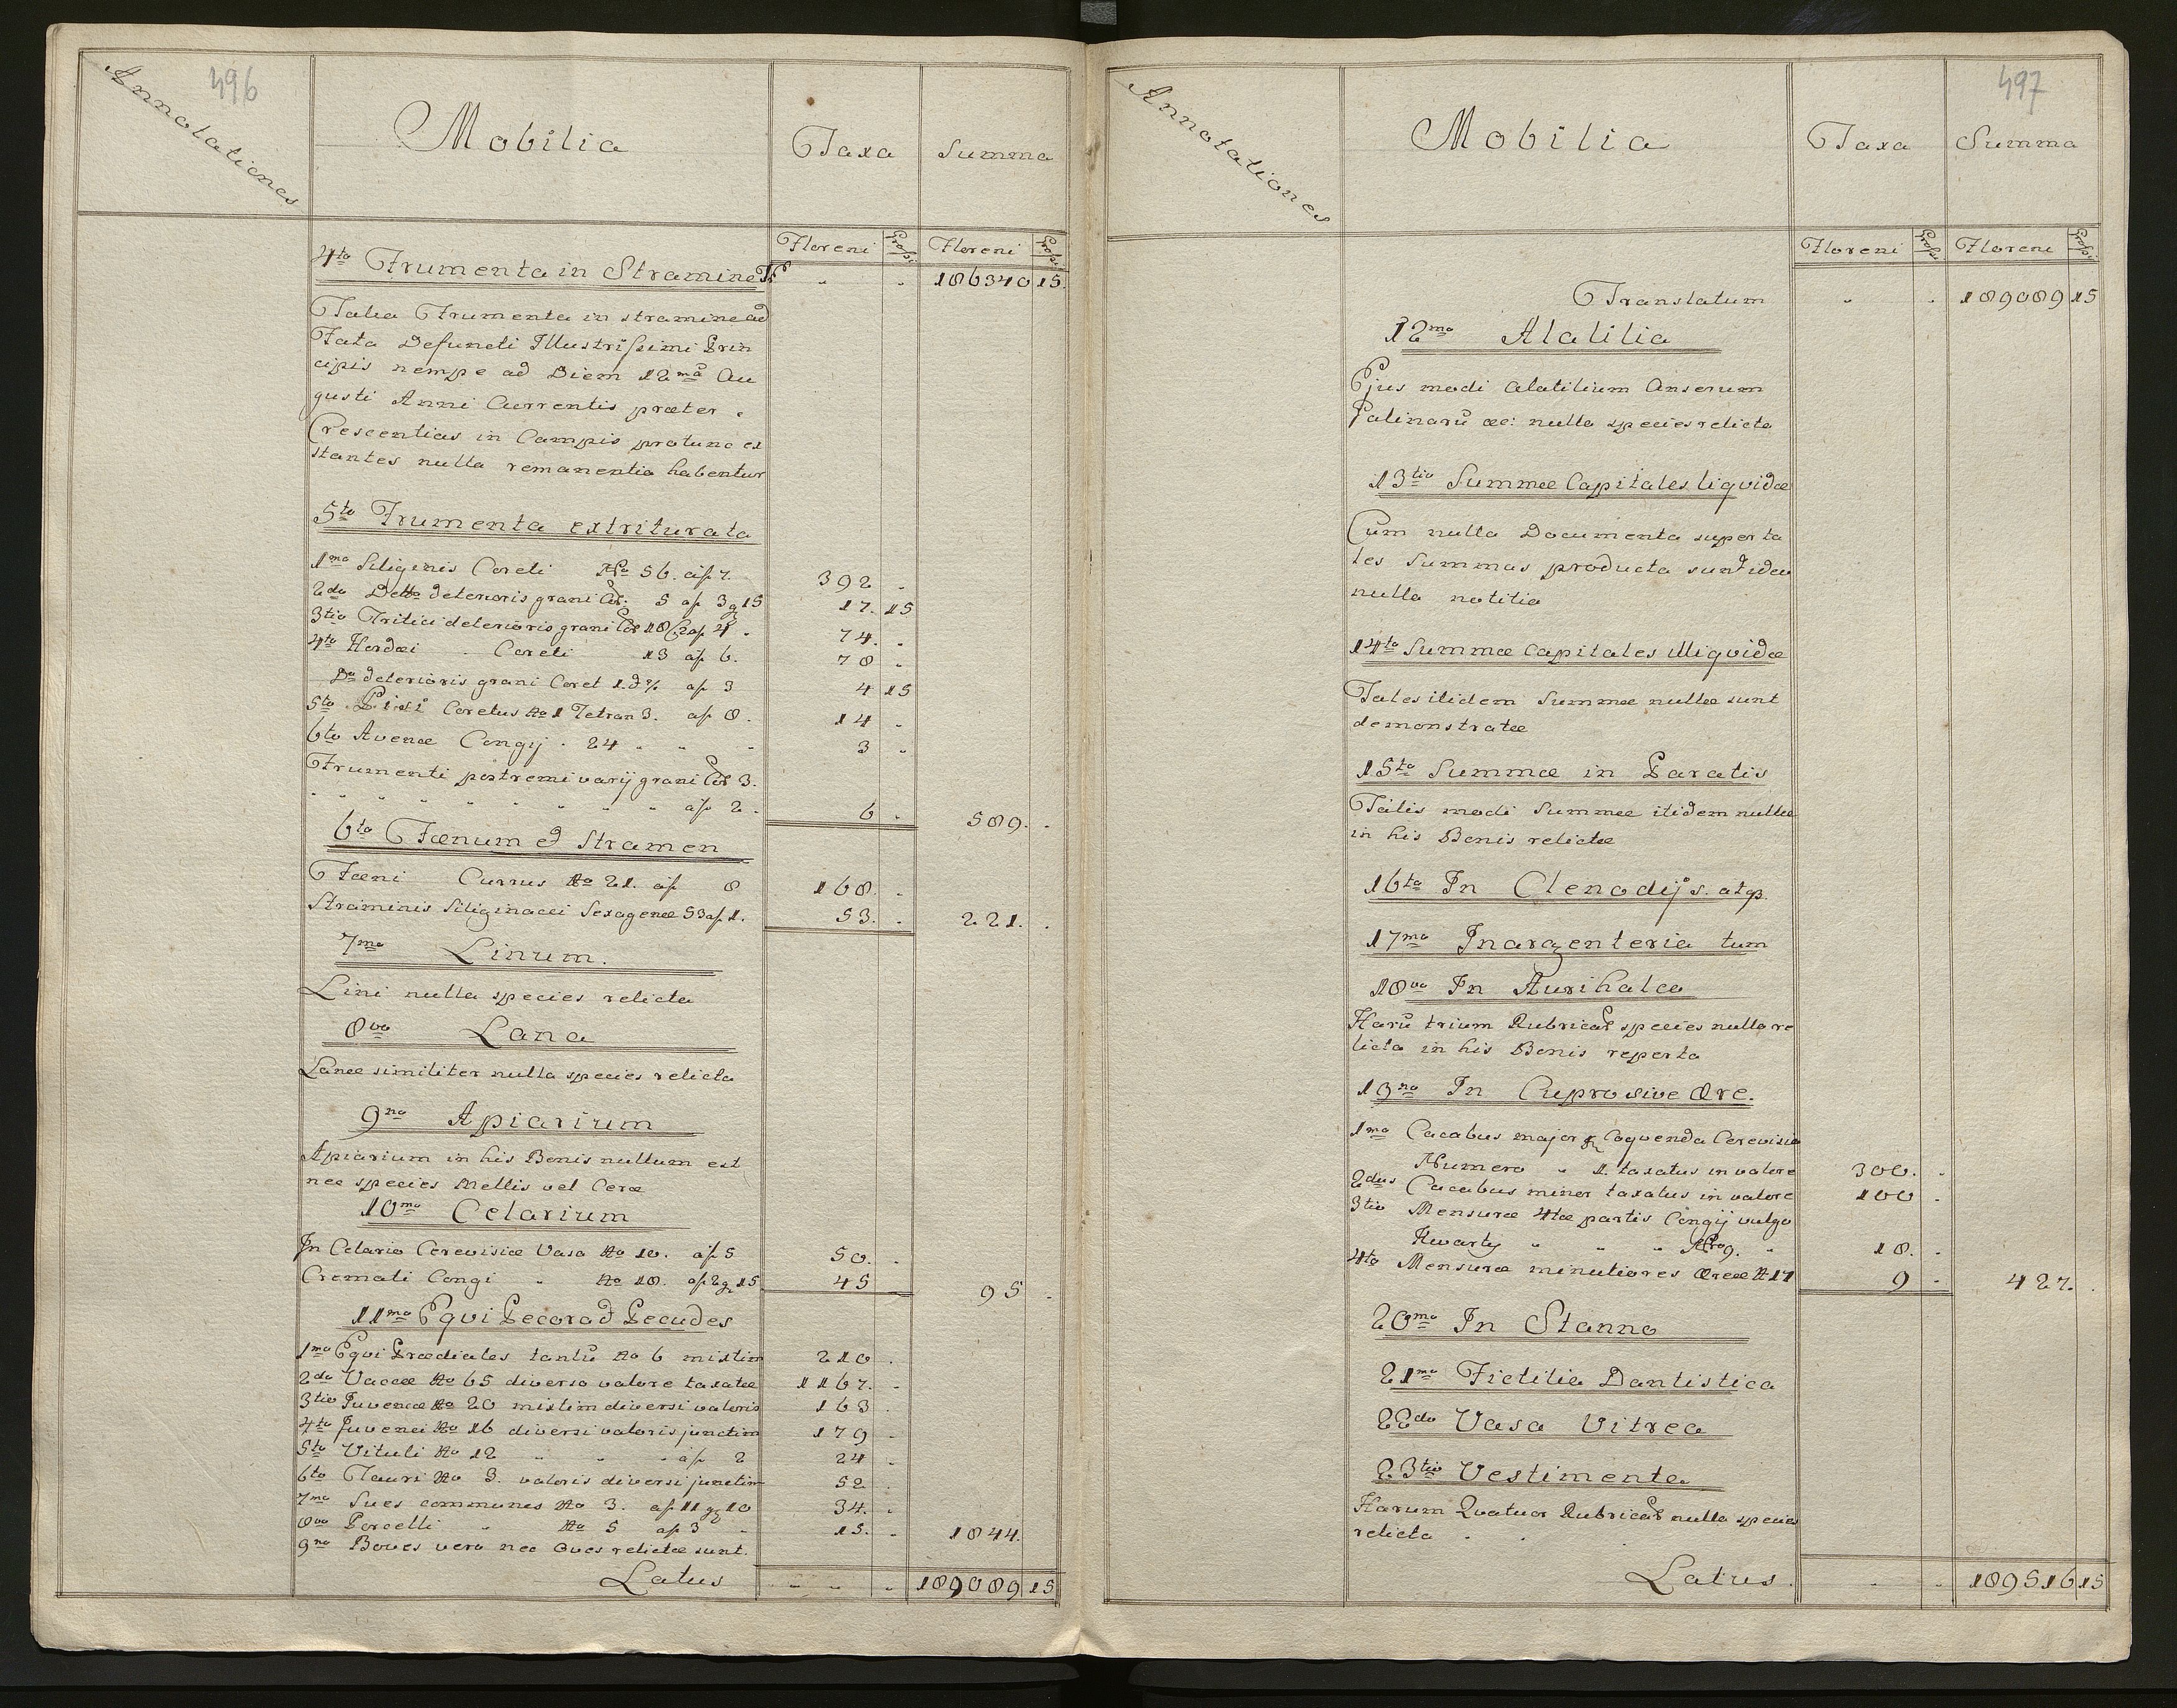 496
Annotationes
Mobilia
Taxa
Summa
Floreni Grossi Floreni Grossi
4to Frumenta in Stramine Tr " " 186340 15.
Talia Frumenta in stramine ad
Fata Defuncti Illustrissimi Prin
cipis nempe ad Diem 12ma Au
gusti Anni Currentis præter
Crescentias in Campis protunc ex
stantes nulla remanentia habentur
5to Frumenta extriturata
1mo Siliginis Coreti No 56. af 7. 392 "
2do Detto deterioris grani Cor: 5 af 3 g 15 17. 15
3tio Tritici deterioris grani Cor 18 1/2 af 4 " 74. "
4to Hordei " Coreti 13 af 6. 78 "
Do deterioris grani Coret 1. d° af 3 4 15
5to Pisi Coretus No 1 Tetran 3. af 8. 14 "
6to Avenæ Congij . 24 " " " 3 "
Frumenti postremi varij grani Cor 3.
" " " " " " " " af 2. 6 " 589. "
6to Fœnum et Stramen
Fœni Currus No 21. af 8 168. "
Straminis Siliginacei Sexagenæ 53 af 1. 53. " 221. "
7mo Linum.
Lini nulla species relicta
8vo Lana
Lanæ similiter nulla species relicta
9no Apiarium
Apiarium in his Bonis nullum est
nec species Mellis vel Ceræ
10mo Celarium
In Celario Cerevisiæ Vasa No 10. af 5 50. "
Cremati Congi " No 18. af 2 g 15 45 95 "
11mo Equi Pecora et Pecudes
1mo Equi Prædiales tantū No 6 mixtim 210 "
2do Vaccæ No 65 diverso valore taxatæ 1167. "
3tio Juvencæ No 20 mixtim diversi valoris 163 "
4to Juvenci No 16 diversi valoris junctim 179 "
5to Vituli No 12 " " " af 2 24 "
6to Tauri No 3. valoris diversi junctim 52 "
7mo Sues communes No 3. af 11 g 10 34. "
8vo Porcelli " No 5 af 3 " 15. " 1844.
9no Boves vero nec Oves relictæ sunt.
Latus " " " 189089 15
497
Annotationes
Mobilia
Taxa
Summa
Floreni Grossi Floreni Grossi
Translatum " " 189089 15
12mo Alatilia
Ejus modi alatilium Anserum
Galinarū &c: nulla species relicta
13tio Summæ Capitales liqvidæ
Cum nulla Documenta super ta
les Summas producta sunt ideo
nulla notitia
14to Summæ Capitales illiqvidæ
Tales itidem Summæ nullæ sunt
demonstratæ
15to Summæ in Paratis
Talis modi Summæ itidem nullæ
in his Bonis relictæ
16to In Clenodijs. atq.
17mo In argenteria tum
18vo In Aurihalco
Harū trium Rubricar species nulla re
licta in his Bonis reperta
19no In Cupro sive Ære.
1mo Cacabus major pr Coqvenda Cerevisia
Numero " 1. taxatus in valore 300. "
2dus Cacabus minor taxatus in valore 100 "
3tio Mensuræ 4tæ partis Congij vulgo
Kwarty " " " Nro 9. " 18. "
4to Mensuræ minutiores Æreæ No 17 9 " 427. "
20mo In Stanno
21mo Fictilia Dantistica
22do Vasa Vitrea
23tio Vestimenta
Harum Quatuor Rubricar nulla species
relicta " "
Latus. " " 189516 15